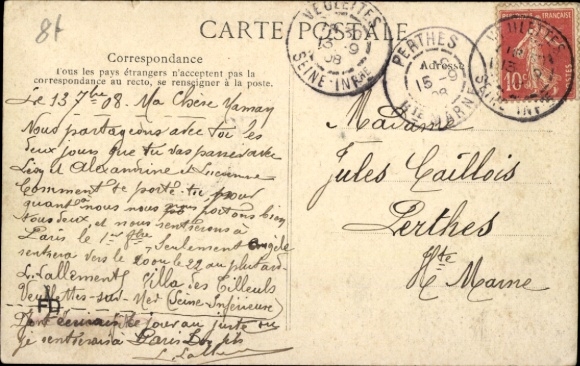 81
CARTE POSTALE
Correspondance
Tous les pays étrangers n'acceptent pas la
correspondance au recto, se renseigner à la poste.
Adresse
VEULETTES
13 -9
08
SEINE-INFre
PERTHES
15 -9
08
Hte MARNE
VEULETTES
SEINE-INFre
10c
POSTES
Le 13 7bre 08. Ma Chère Maman
Nous partageons avec toi les
deux jours que tu vas passer avec
Lisy et Alexandrine et Lucienne
Comment te porte-tu, pour
quant à nous nous portons bien
tous deux, et nous rentrerons à
Paris le 1er 8bre. Seulement Angèle
rentrera vers le 20 ou le 22 au plus tard
L. Lallement Villa des Tilleuls
Veulettes-sur-Mer (Seine Inférieure)
FD
jour au juste ou
je rentrerai à Paris
L. Lall
Madame
Jules Caillois
Perthes
Hte Marne